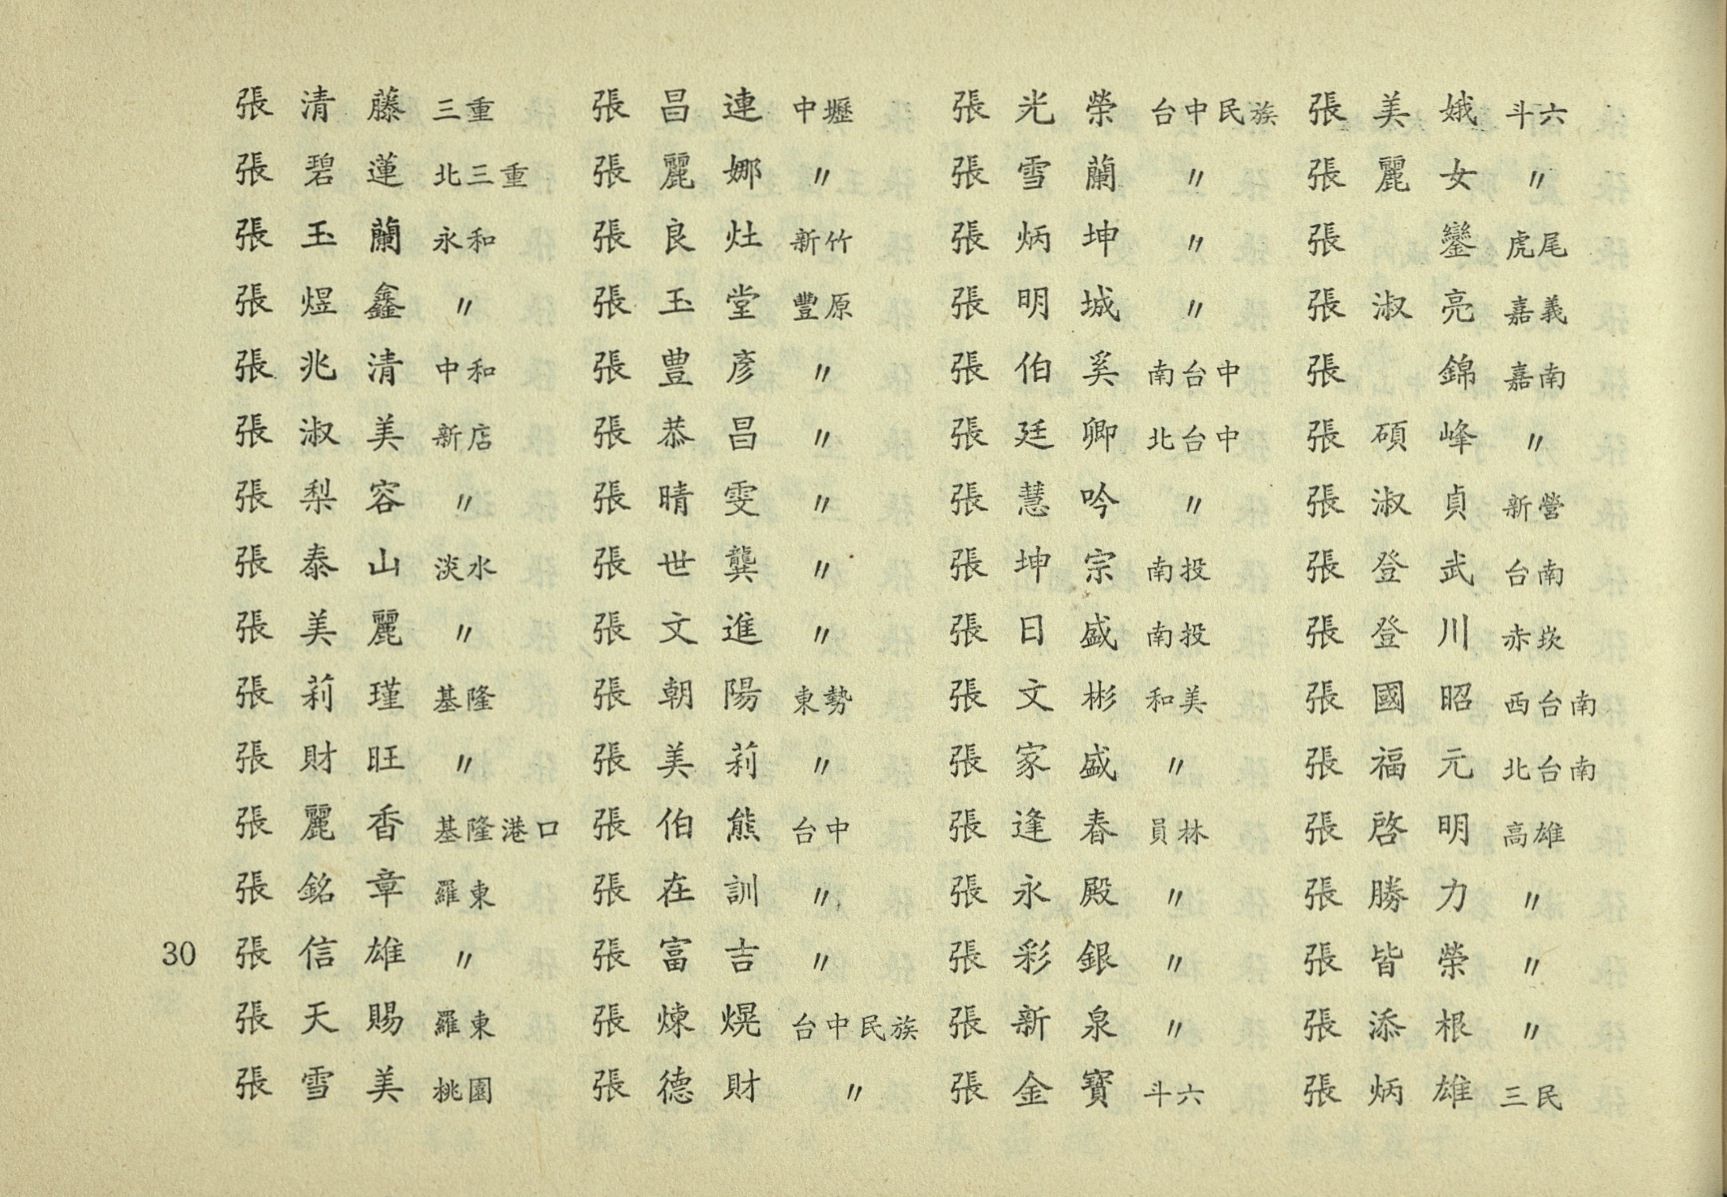 張清藤 三重 張昌連 中壢 張光榮 台中民族 張美娥 斗六
張碧蓮 北三重 張麗娜 〃 張雪蘭 〃 張麗女 〃
張玉蘭 永和 張良灶 新竹 張炳坤 〃 張 鑾 虎尾
張煜鑫 〃 張玉堂 豐原 張明城 〃 張淑亮 嘉義
張兆清 中和 張豊彥 〃 張伯奚 南台中 張 錦 嘉南
張淑美 新店 張恭昌 〃 張廷卿 北台中 張碩峰 〃
張梨容 〃 張晴雯 〃 張慧吟 〃 張淑貞 新營
張泰山 淡水 張世龔 〃 張坤宗 南投 張登武 台南
張美麗 〃 張文進 〃 張日盛 南投 張登川 赤崁
張莉瑾 基隆 張朝陽 東勢 張文彬 和美 張國昭 西台南
張財旺 〃 張美莉 〃 張家盛 〃 張福元 北台南
張麗香 基隆港口 張伯熊 台中 張逢春 員林 張啓明 高雄
張銘章 羅東 張在訓 〃 張永殿 〃 張勝力 〃
30 張信雄 〃 張富吉 〃 張彩銀 〃 張皆榮 〃
張天賜 羅東 張煉熀 台中民族 張新泉 〃 張添根 〃
張雪美 桃園 張德財 〃 張金寶 斗六 張炳雄 三民